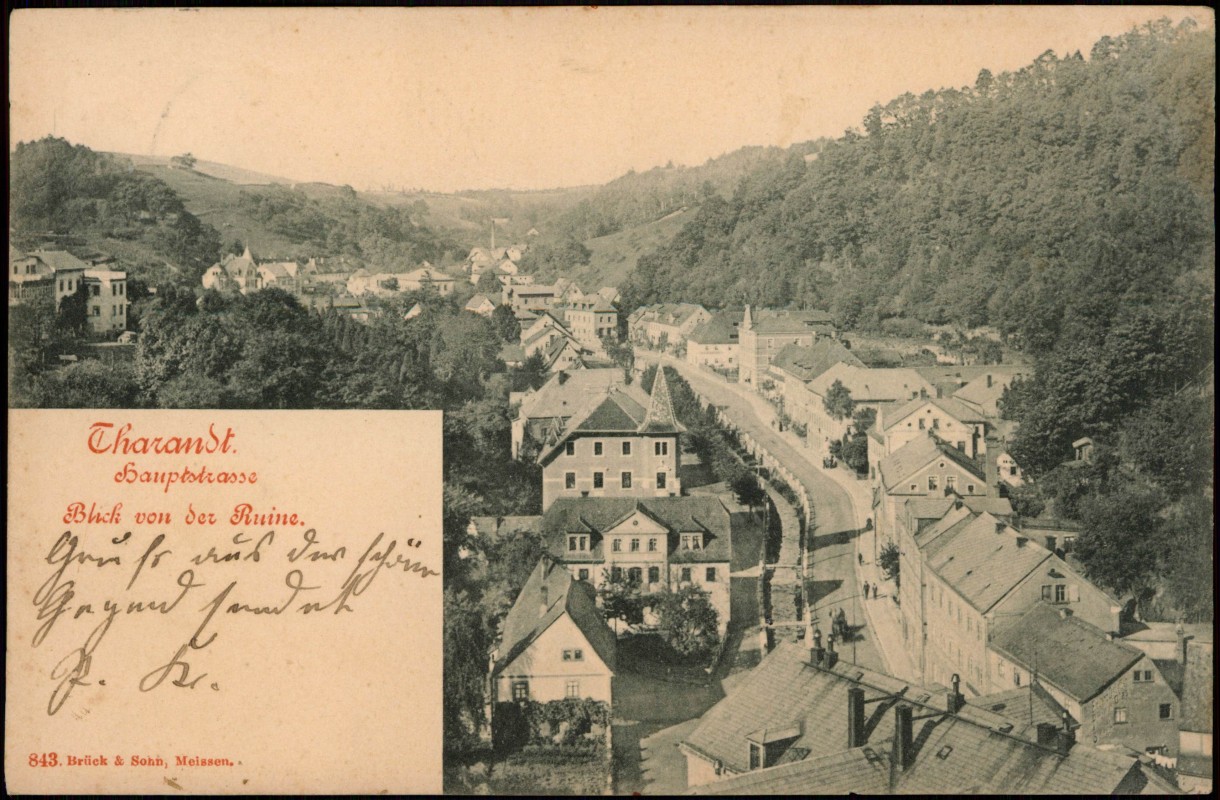 Tharandt.
Hauptstrasse
Blick von der Ruine.
Gruß aus der schön
Gegend sendet
P. Kr.
843. Brück & Sohn, Meissen.